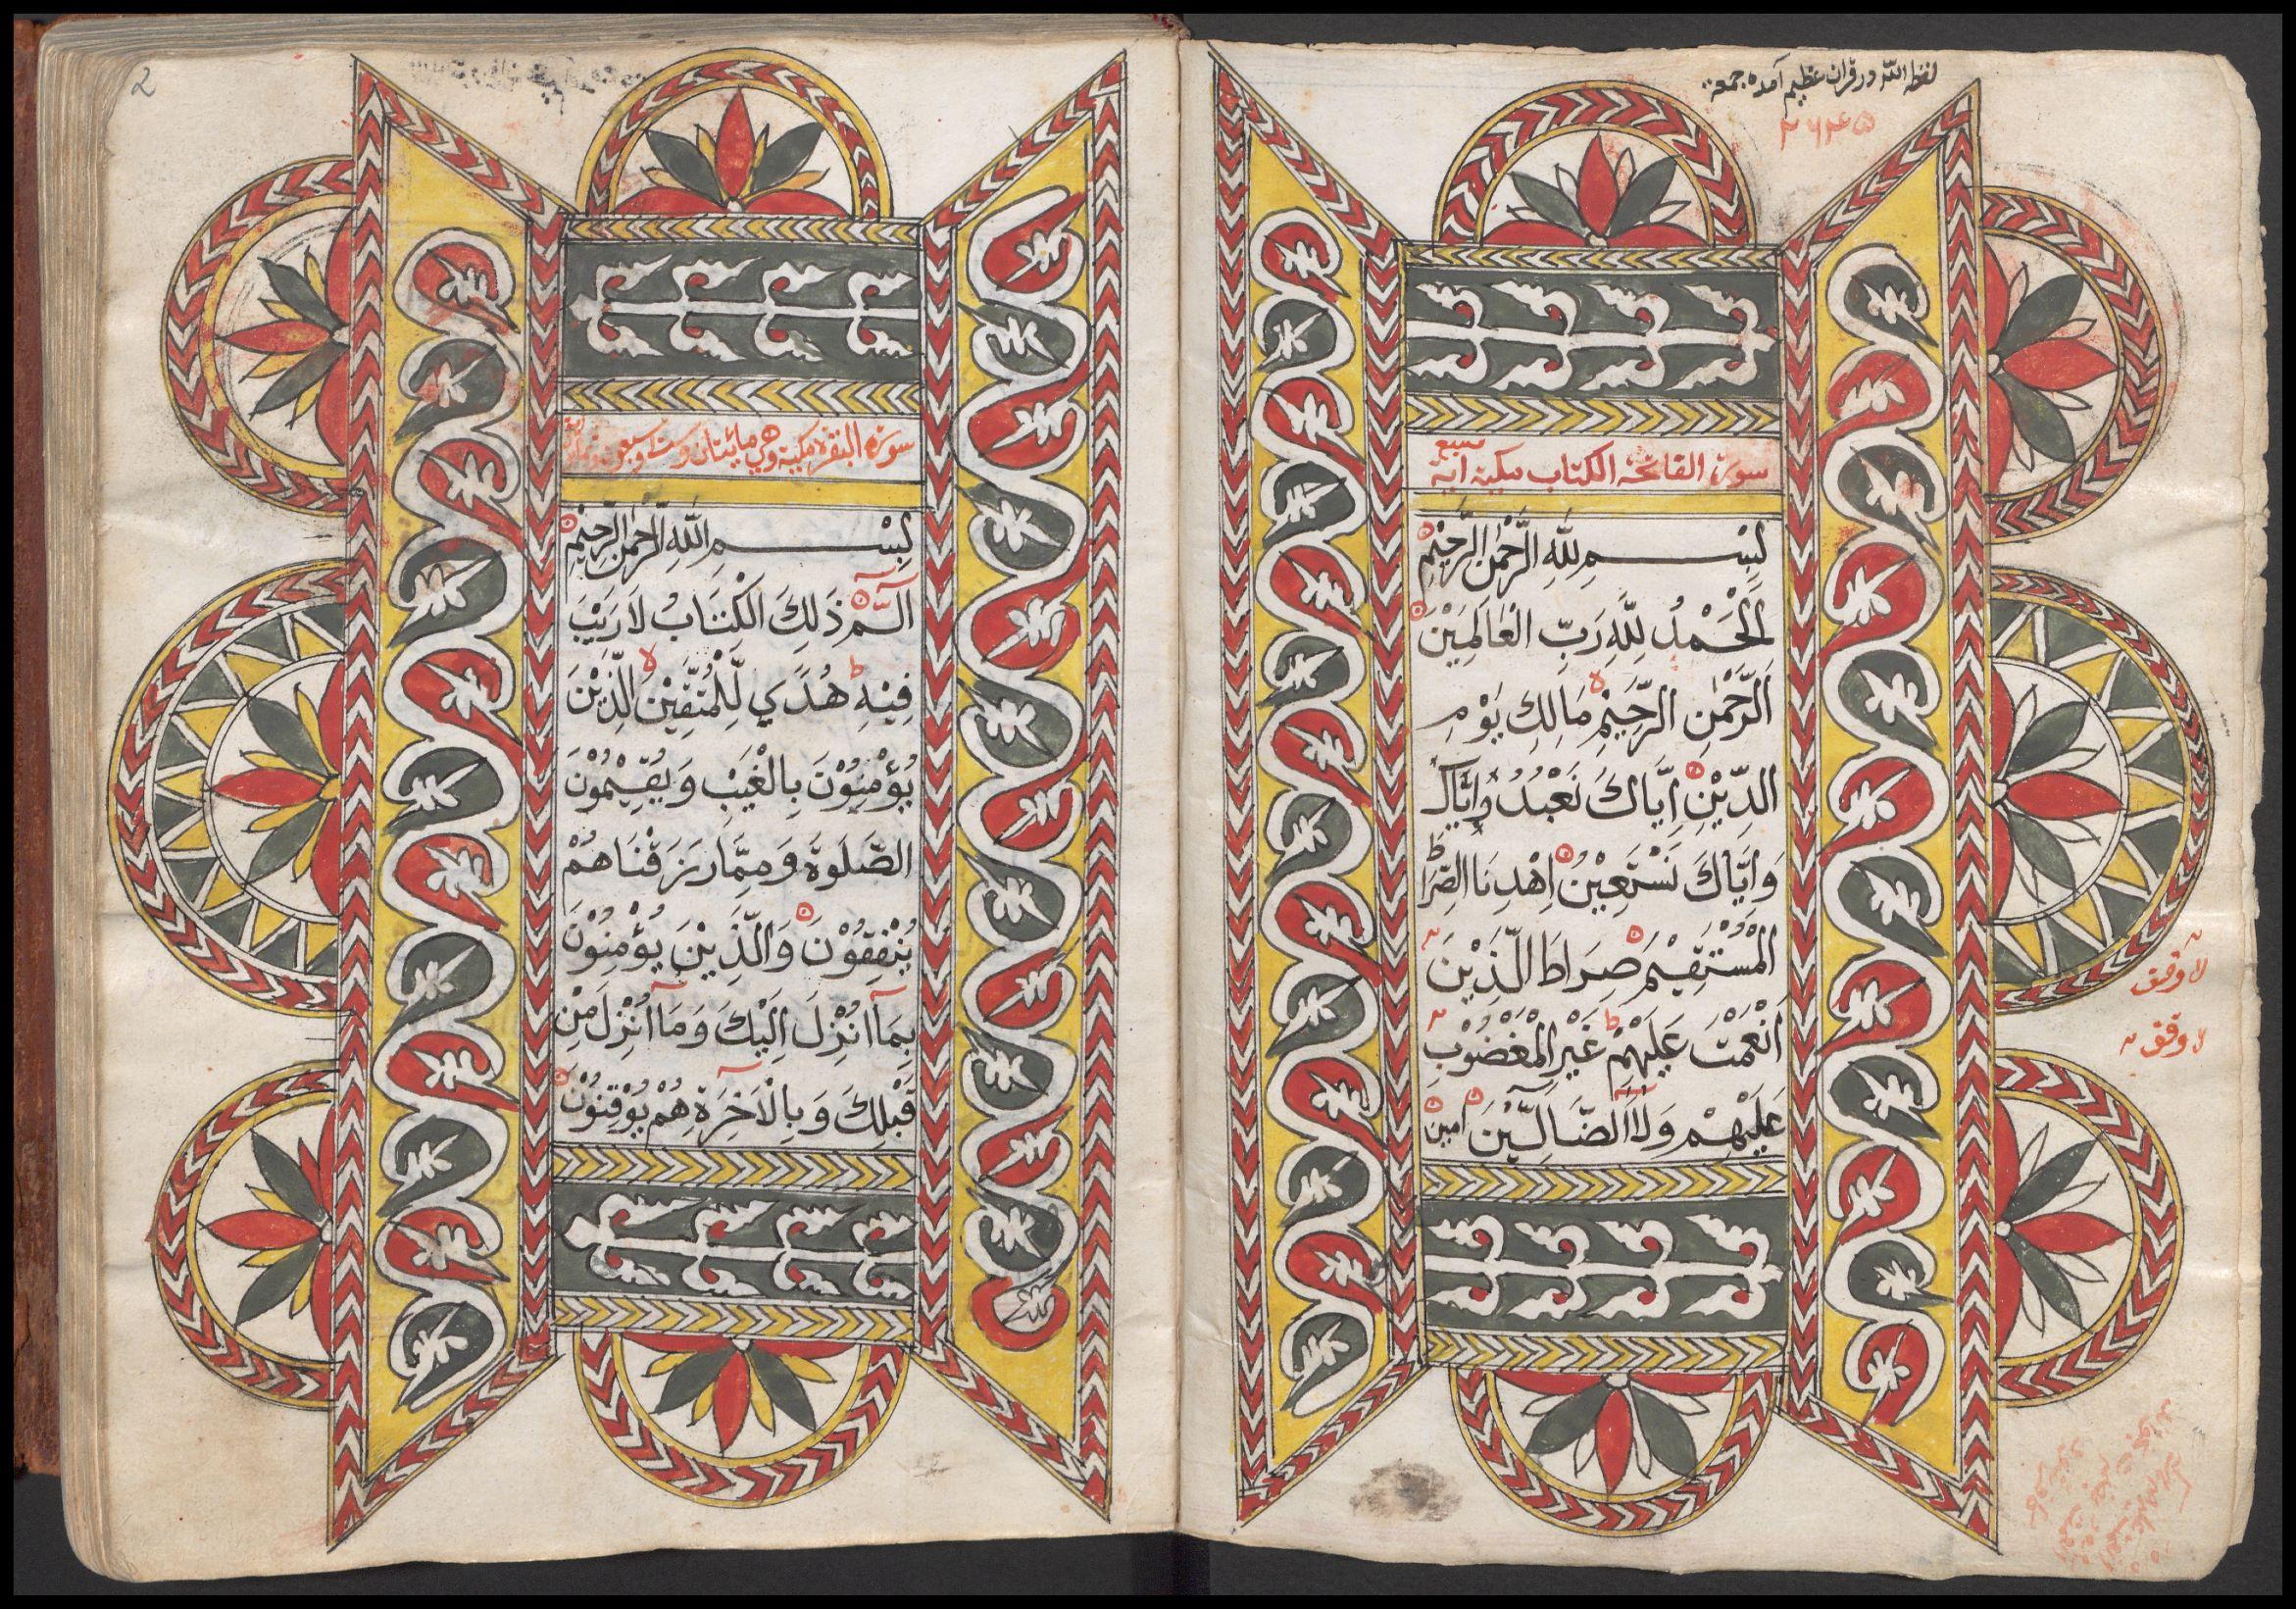 لفظ الله در قرآن عظیم آمده جمعه
۲۶۴۵
سورة الفاتحة الكتاب مكية سبع اية
بِسْمِ للّٰهِ الرَّحْمٰنِ الرَّحِيْمِ
اَلْحَمْدُ لِلّٰهِ رَبِّ الْعَالَمِيْنَ
اَلرَّحْمٰنِ الرَّحِيْمِ مَالِكِ يَوْمِ
الدِّيْنِ اِيَّاكَ نَعْبُدُ وَاِيَّاكَ
وَاِيَّاكَ نَسْتَعِيْنُ اِهْدِنَا الصِّرَاطَ
الْمُسْتَقِيْمَ صِرَاطَ الَّذِيْنَ
اَنْعَمْتَ عَلَيْهِمْ غَيْرِ الْمَغْضُوْبِ
عَلَيْهِمْ وَلَا الضَّآلِّيْنَ اٰمِيْنَ
لا وقف
لا وقف
2
سورة البقرة مكية وهي مائتان وست وثمانون
بِسْمِ اللّٰهِ الرَّحْمٰنِ الرَّحِيْمِ
الٓمّٓ ذَلِكَ الْكِتَابُ لَا رَيْبَ
فِيْهِ هُدًي لِّلْمُتَّقِيْنَ الَّذِيْنَ
يُؤْمِنُوْنَ بِالْغَيْبِ وَيُقِيْمُوْنَ
الصَّلٰوةَ وَمِمَّا رَزَقْنَاهُمْ
يُنْفِقُوْنَ وَالَّذِيْنَ يُؤْمِنُوْنَ
بِمَآ اُنْزِلَ اِلَيْكَ وَمَآ اُنْزِلَ مِنْ
قَبْلِكَ وَبِالْاٰخِرَةِ هُمْ يُوْقِنُوْنَ